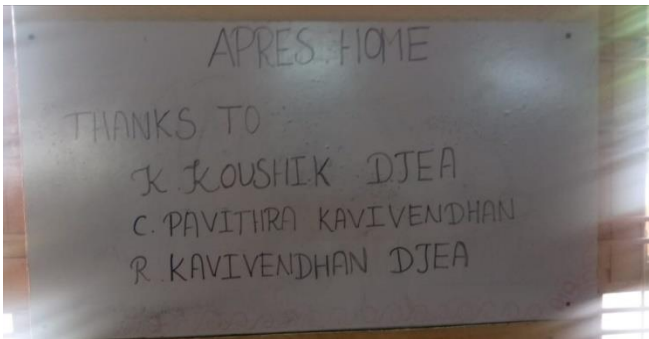 APRES HOME
THANKS TO
K. KOUSHIK DJEA
C. PAVITHRA KAVIVENDHAN
R. KAVIVENDHAN DJEA